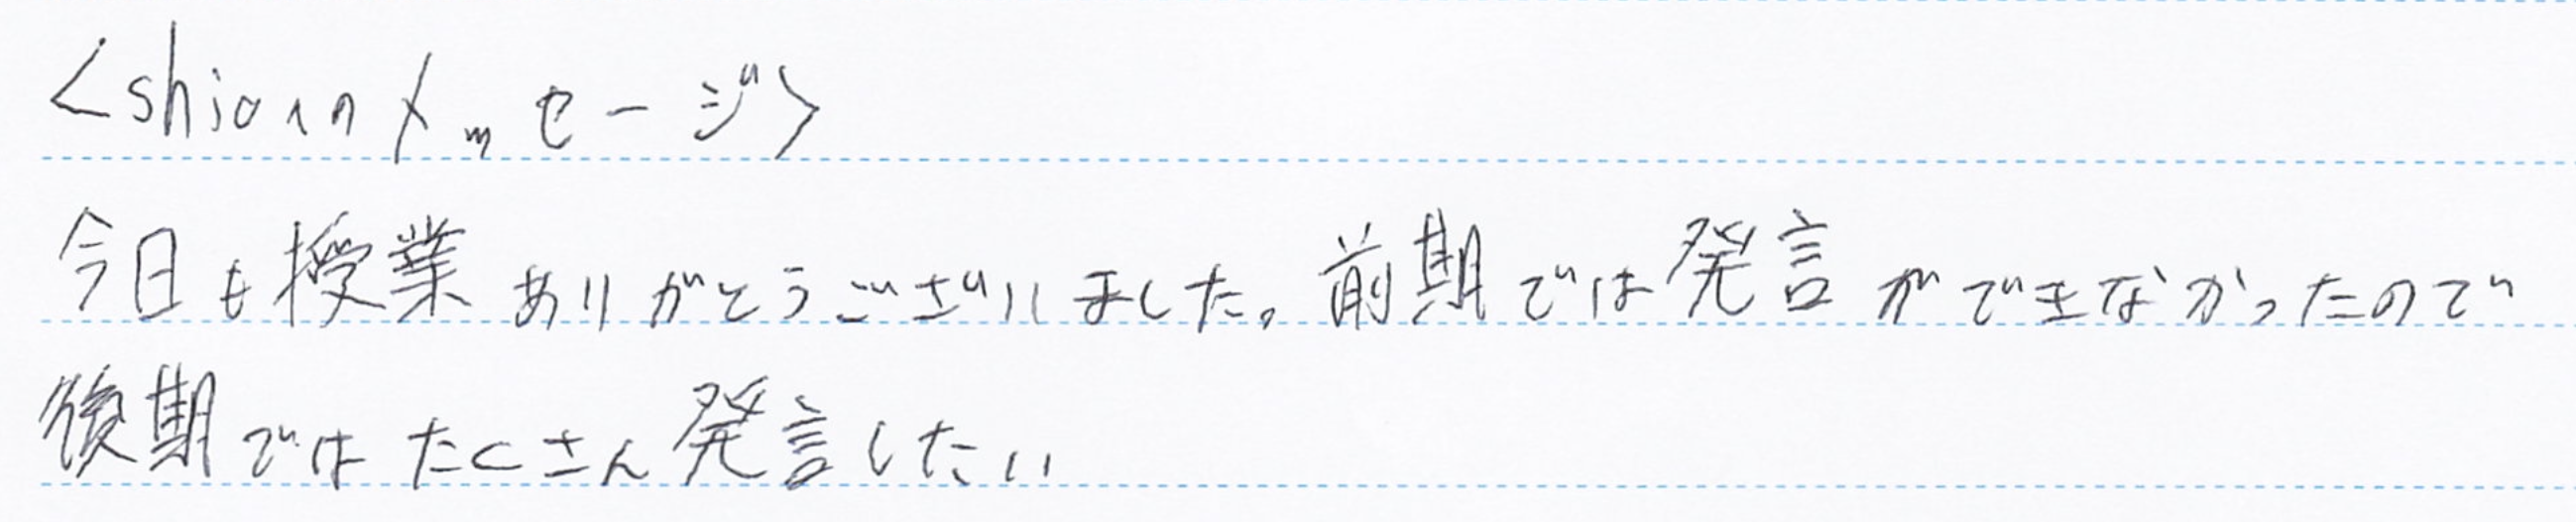 <shionのメッセージ>
今日も授業ありがとうございました。前期では発言ができなかったので
後期ではたくさん発言したい